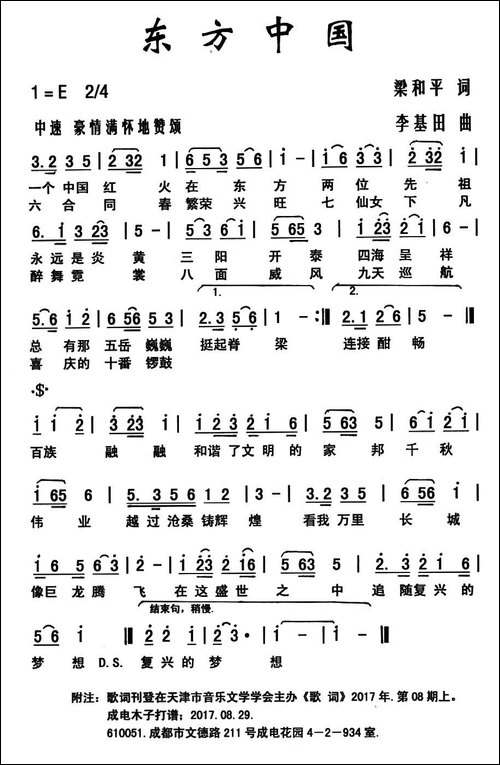 东方中国
1=E 2/4
梁和平 词
中速 豪情满怀地赞颂
李基田 曲
3.2 3 5 | 2 32 1 | 6 5 3 5 6 | 1 - | 1 6 3 3 | 2 32 2 | 1 - |
一个 中国 红 火 在 东 方 两 位 先 祖
六 合 同 春 繁荣 兴 旺 七 仙女 下 凡
6. 1 3 23 | 5 - | 5 3 6 1 | 5 65 3 | 1 23 2 1 | 6 - |
永 远 是 炎 黄 三 阳 开 泰 四海 呈 祥
醉 舞 霓 裳 八 面 威 风 九天 巡 航
1. 2.
5. 6 1 2 | 6 56 5 3 | 2.3 5 6 | 1 - :‖ 2. 1 2 6 | 5 - ‖
总 有那 五岳 巍巍 挺起脊 梁 连接 酣 畅
喜 庆的 十番 锣鼓
·$·
1 1 2 | 5. 3 23 | 1 2 2 1 6 | 5 63 5 | 6 1 2 |
百族 融融 和谐了文明的 家 邦 千秋
1 65 6 | 5. 3 5 6 1 2 | 3 - | 3. 2 3 5 | 6 56 1 |
伟 业 越 过 沧桑 铸辉 煌 看我 万里 长 城
1 6 5 6 3 | 2 - | 1 23 2 1 6 | 5 63 5 | 2. 3 2 1 6 |
像巨 龙 腾 飞 在 这 盛 世 之 中 追 随复兴 的
结束句,稍慢.
5 6 1 ‖ 2 2 1 | 2 3. | 1 - ‖
梦 想 D.S. 复兴的 梦 想
附注: 歌词刊登在天津市音乐文学学会主办《歌 词》2017年. 第08期上。
成电木子打谱: 2017.08.29.
610051. 成都市文德路211号成电花园4-2-934室.